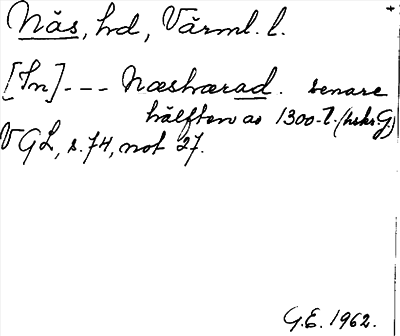 Näs, hd, Värml. l.
[In] --- Næshærad. senare
hälften av 1300-t. (hskr. G.)
VGL, s. 74, not 27.
G.E. 1962.